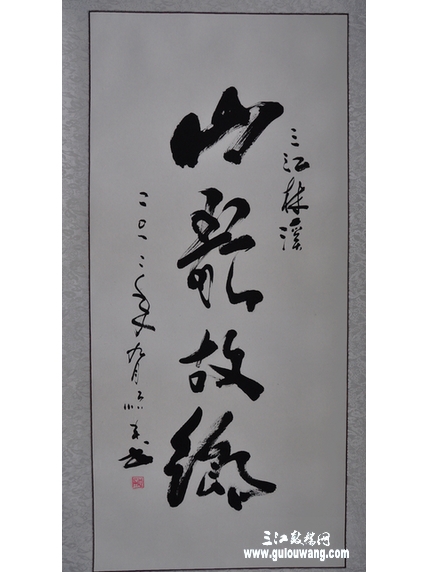 三江林溪
山歌故鄉
二〇一二年九月
三江鼓楼网
www.gulouwang.com